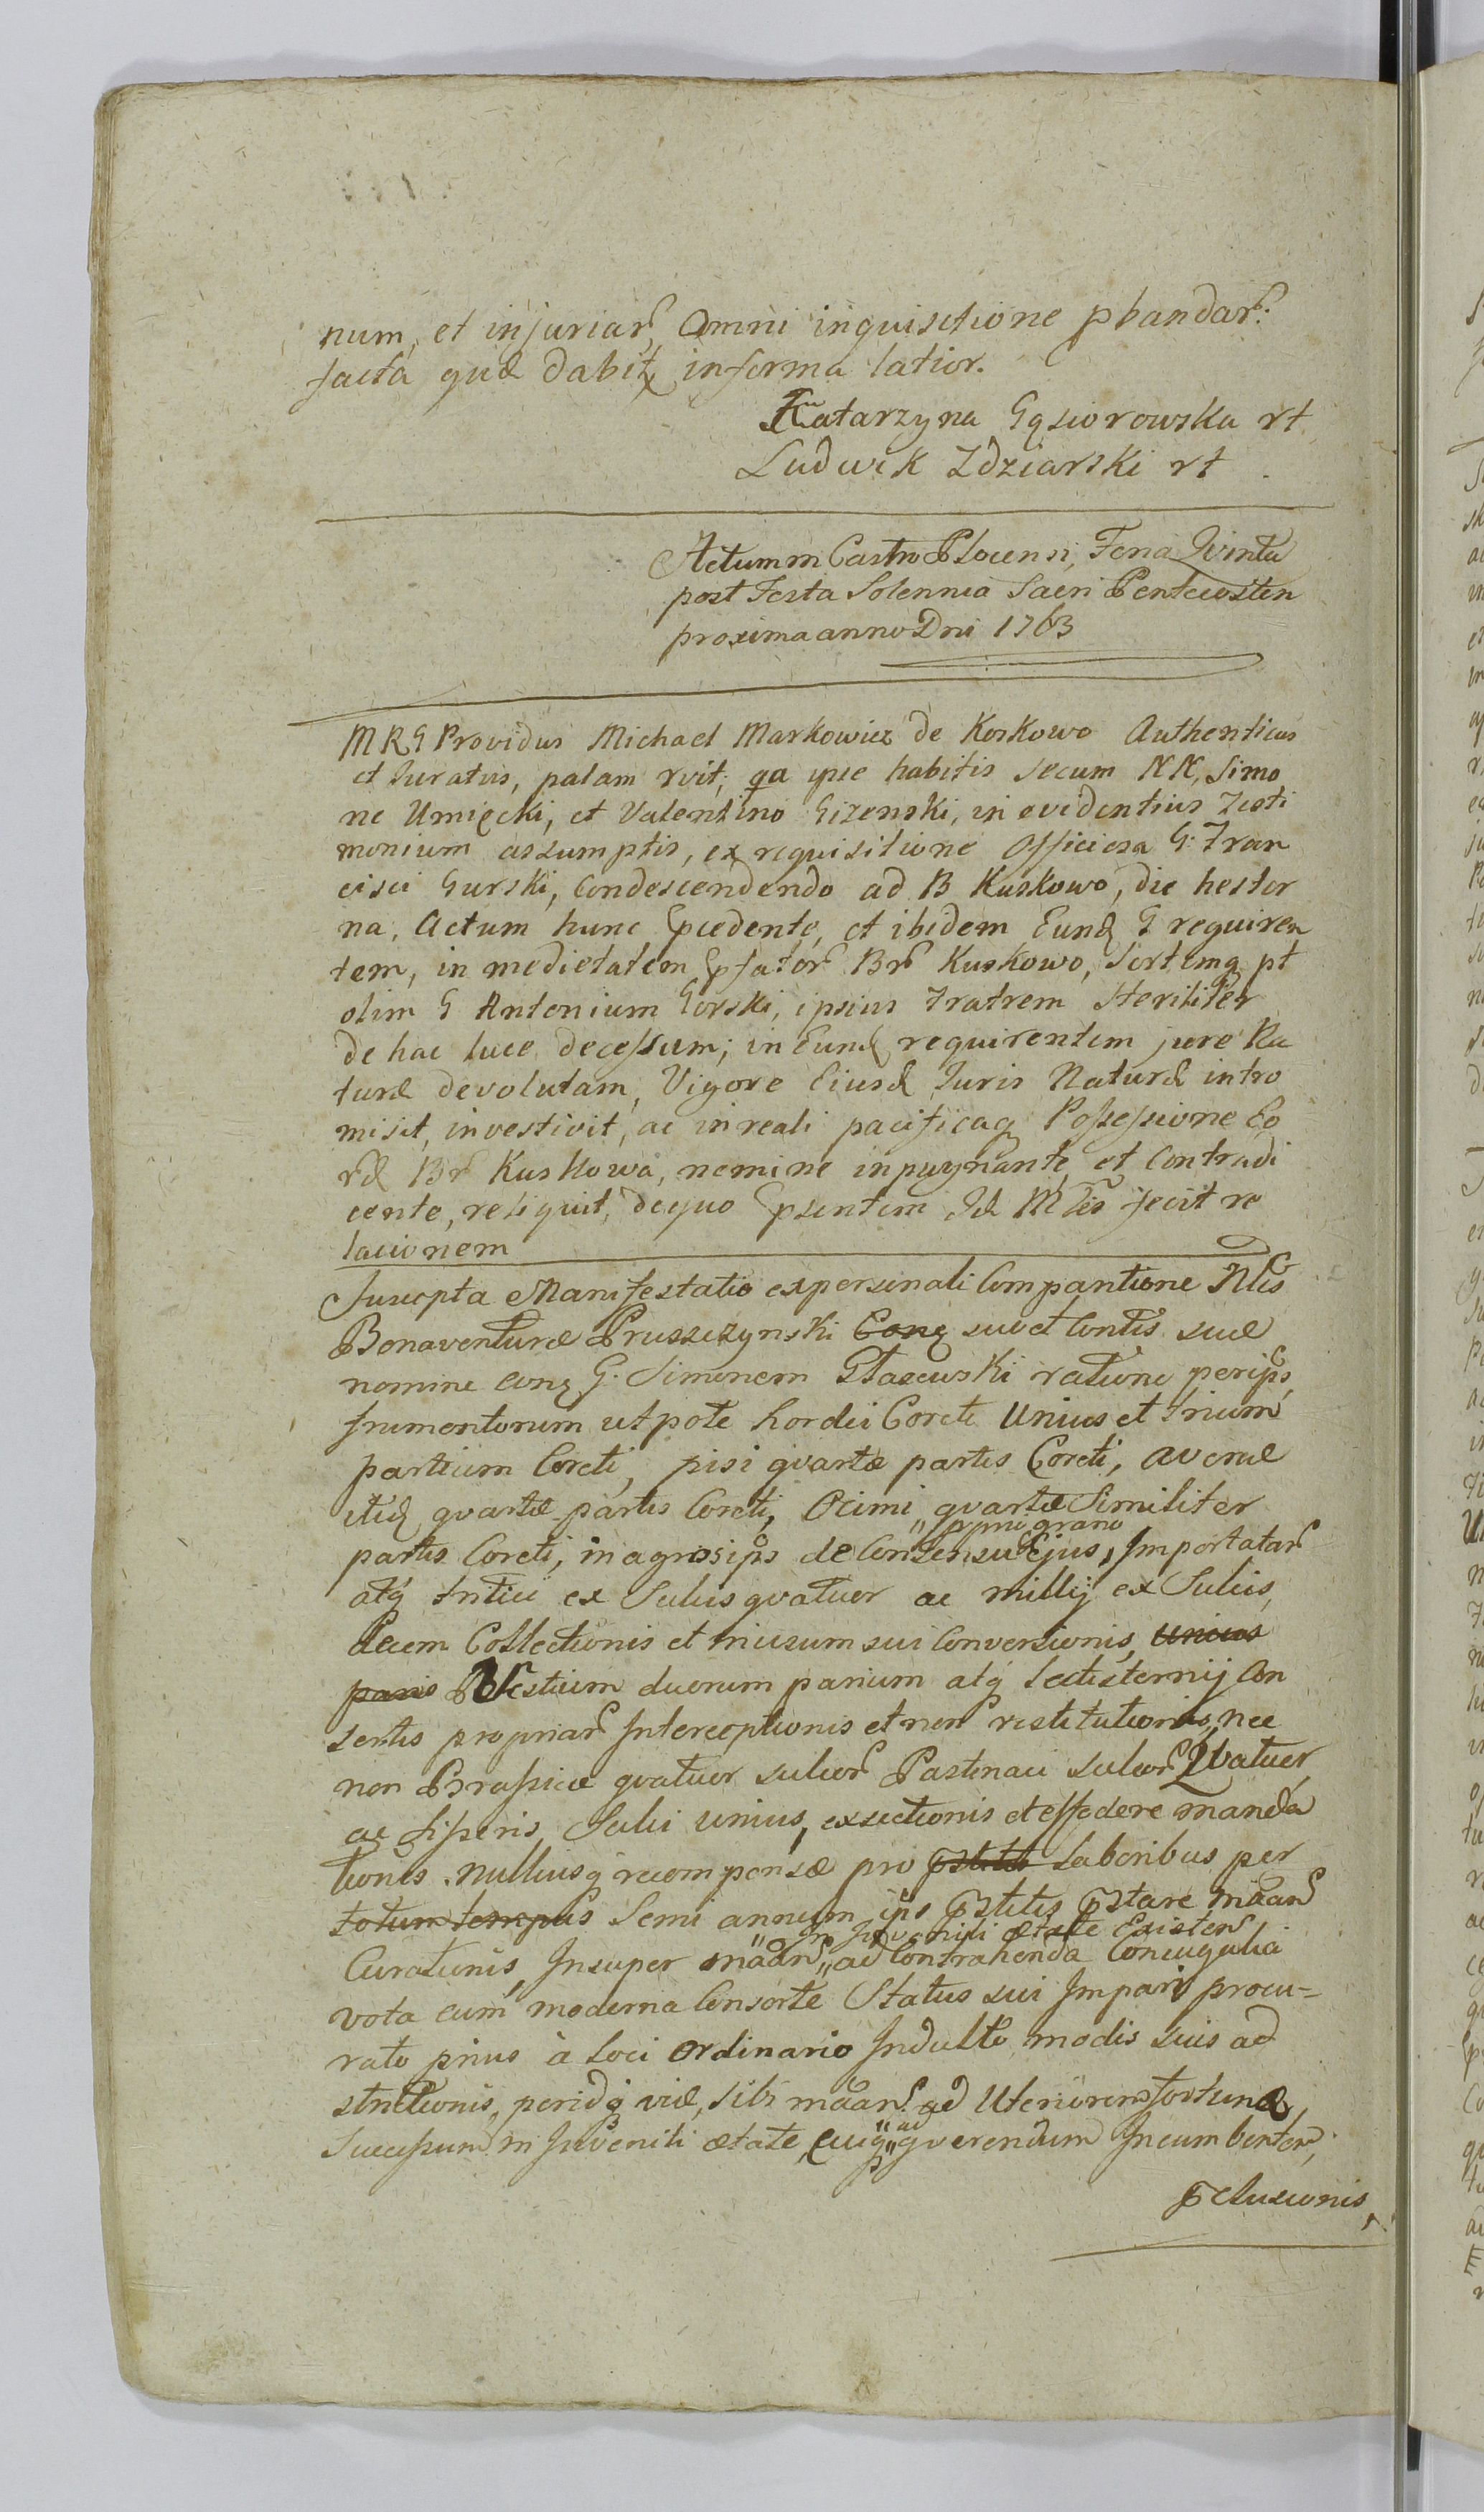 num, et injuriar, Omni inquisitione pbandar:
facta quæ dabitx in forma latior.
Katarzyna Gąsiorowska rt
Ludwik Zdziarski rt
Actum in Castro Plocensi, Feria Qvinta
post Festa Solennia Sacri Pentecosten
proxima anno Dni 1763
MRG Providus Michael Markowicz de Koskowo Authenticus
et Juratus, palam rvit, qa ipse habitis secum NN, Simo
ne Umięcki, et Valentino Gizenski, in evidentius Testi
monium assumptis, ex requisitione Officiosa G. Fran
cisci Gurski, Condescendendo ad B Kuskowo, die hester
na, Actum hunc pcedente, et ibidem Eund G requiren
tem, in medietatem pfator Br Kuskowo, Sortemq pt
olim G Antonium Gorski, ipsius Fratrem steriliter
de hac luce decessum; in Eund requirentem jure Na
turæ devolutam, Vigore Eiusd Juris Naturæ intro
misit, investivit, ac in reali pacificaq Possessione Eo
rd Br Kuskowa, nemine inpugnante, et Contradi
cente, reliquit, de quo psentem Id Mlis fecit re
lacionem
Suscepta Manifestatio ex personali Compantione Nlis
Bonaventuræ Pruszczynski Conq suo et Contis suæ
nomine conq G. Simonem Staxewski ratione per ips
frumentorum utpote hordei Coreti Unius et Trium
partium Coreti, pisi qvartæ partis Coreti, avenæ
itid qvartæ partis Coreti, Ocimi qvartæ Similiter
partis Coreti, in agros ips de Consensu Ejus, " pprio grano Importatar
atq tritici ex Sulcis qvatuor ac millij ex Sulcis
decem Collectionis et in usum sui Conversionis, unius
paris Vestium duorum parium atq Lectisternij Con
sortis propriar Interceptionis et non restitutionis, nec
non Brassicæ qvatuor sulcor Pastinaci sulcor Qvatuor,
ac Siseris, Sulci unius, exsectionis et effodere manda
tionis. nulliusq recompensæ pro pstitis Laboribus per
totum tempus Semi annum ips pstitis pstare
Curationis, Insuper " in Juvenili ætate Existen ad Contrahenda Conjugalia
vota cum moderna Consorte Status sui Impari procu=
rato prius à Loci Ordinario Indulto, modis suis ad
strictionis, peridq viæ, sibi ad Uteriorem fortunæ
Successum in Juvenili ætate, qverendum Incumbenten,
pclusionis,